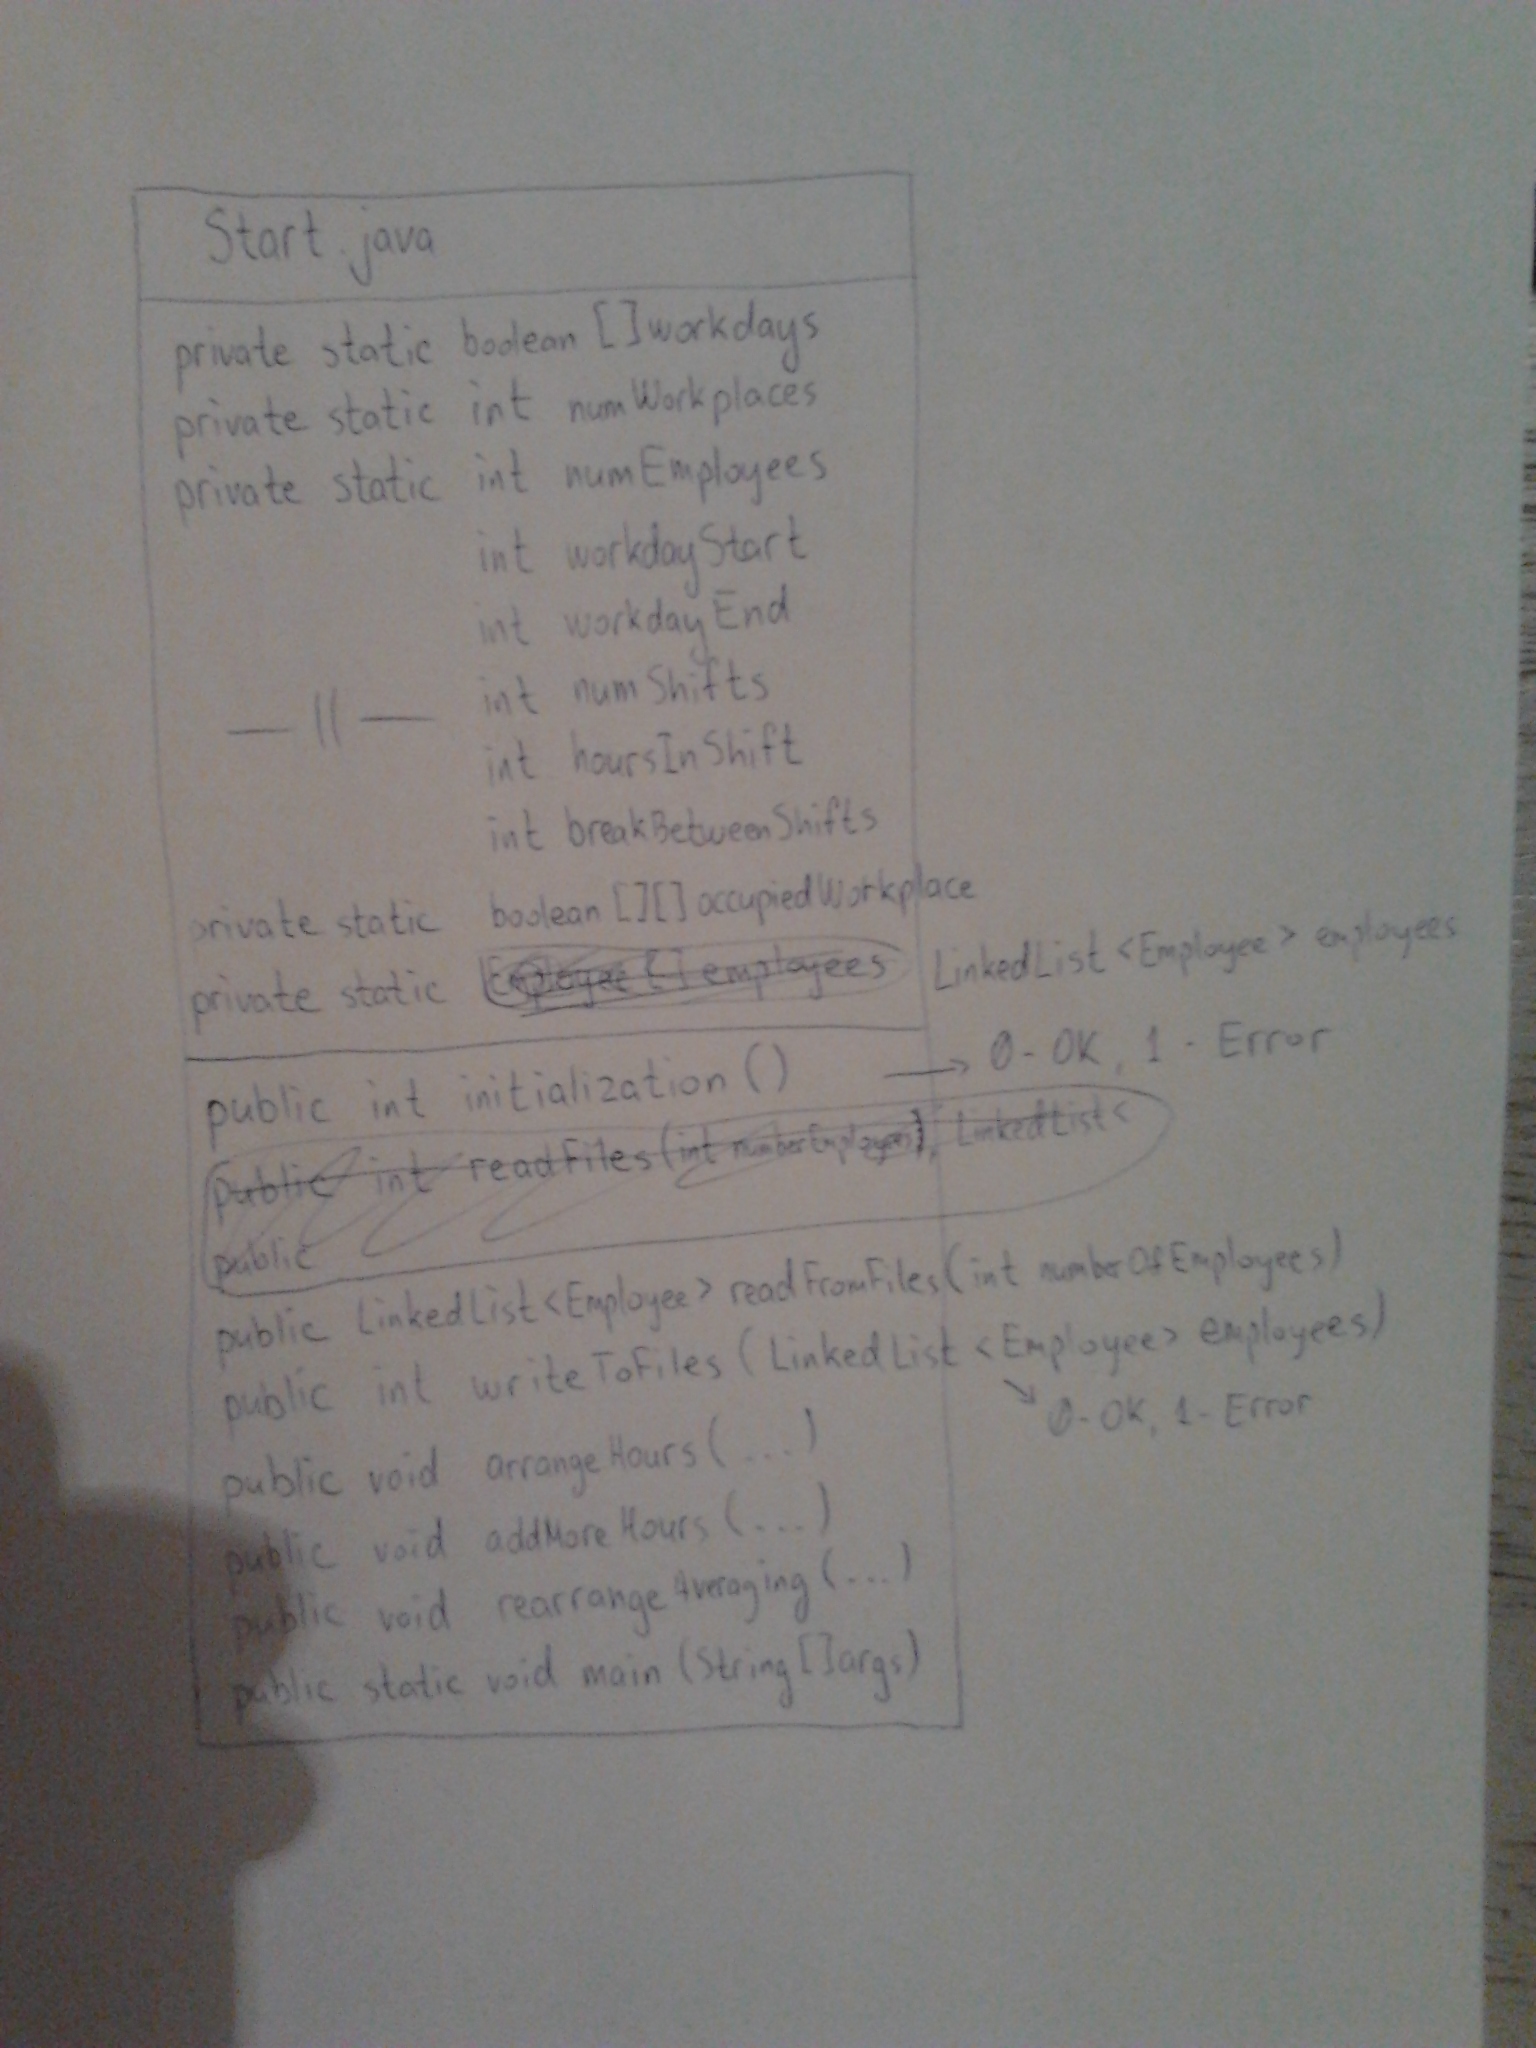 Start.java
private static boolean []workdays
private static int numWorkplaces
private static int numEmployees
int workdayStart
int workdayEnd
— || — int numShifts
int hoursInShift
int breakBetweenShifts
private static boolean [][] occupiedWorkplace
private static Employee [] employees LinkedList <Employee> employees
public int initialization () → 0 - OK, 1 - Error
public int readFiles (int numberEmployees), LinkedList <
public
public LinkedList <Employee> readFromFiles (int numberOfEmployees)
public int writeToFiles (LinkedList <Employee> employees)
↘ 0 - OK, 1 - Error
public void arrangeHours (...)
public void addMoreHours (...)
public void rearrangeAveraging (...)
public static void main (String []args)